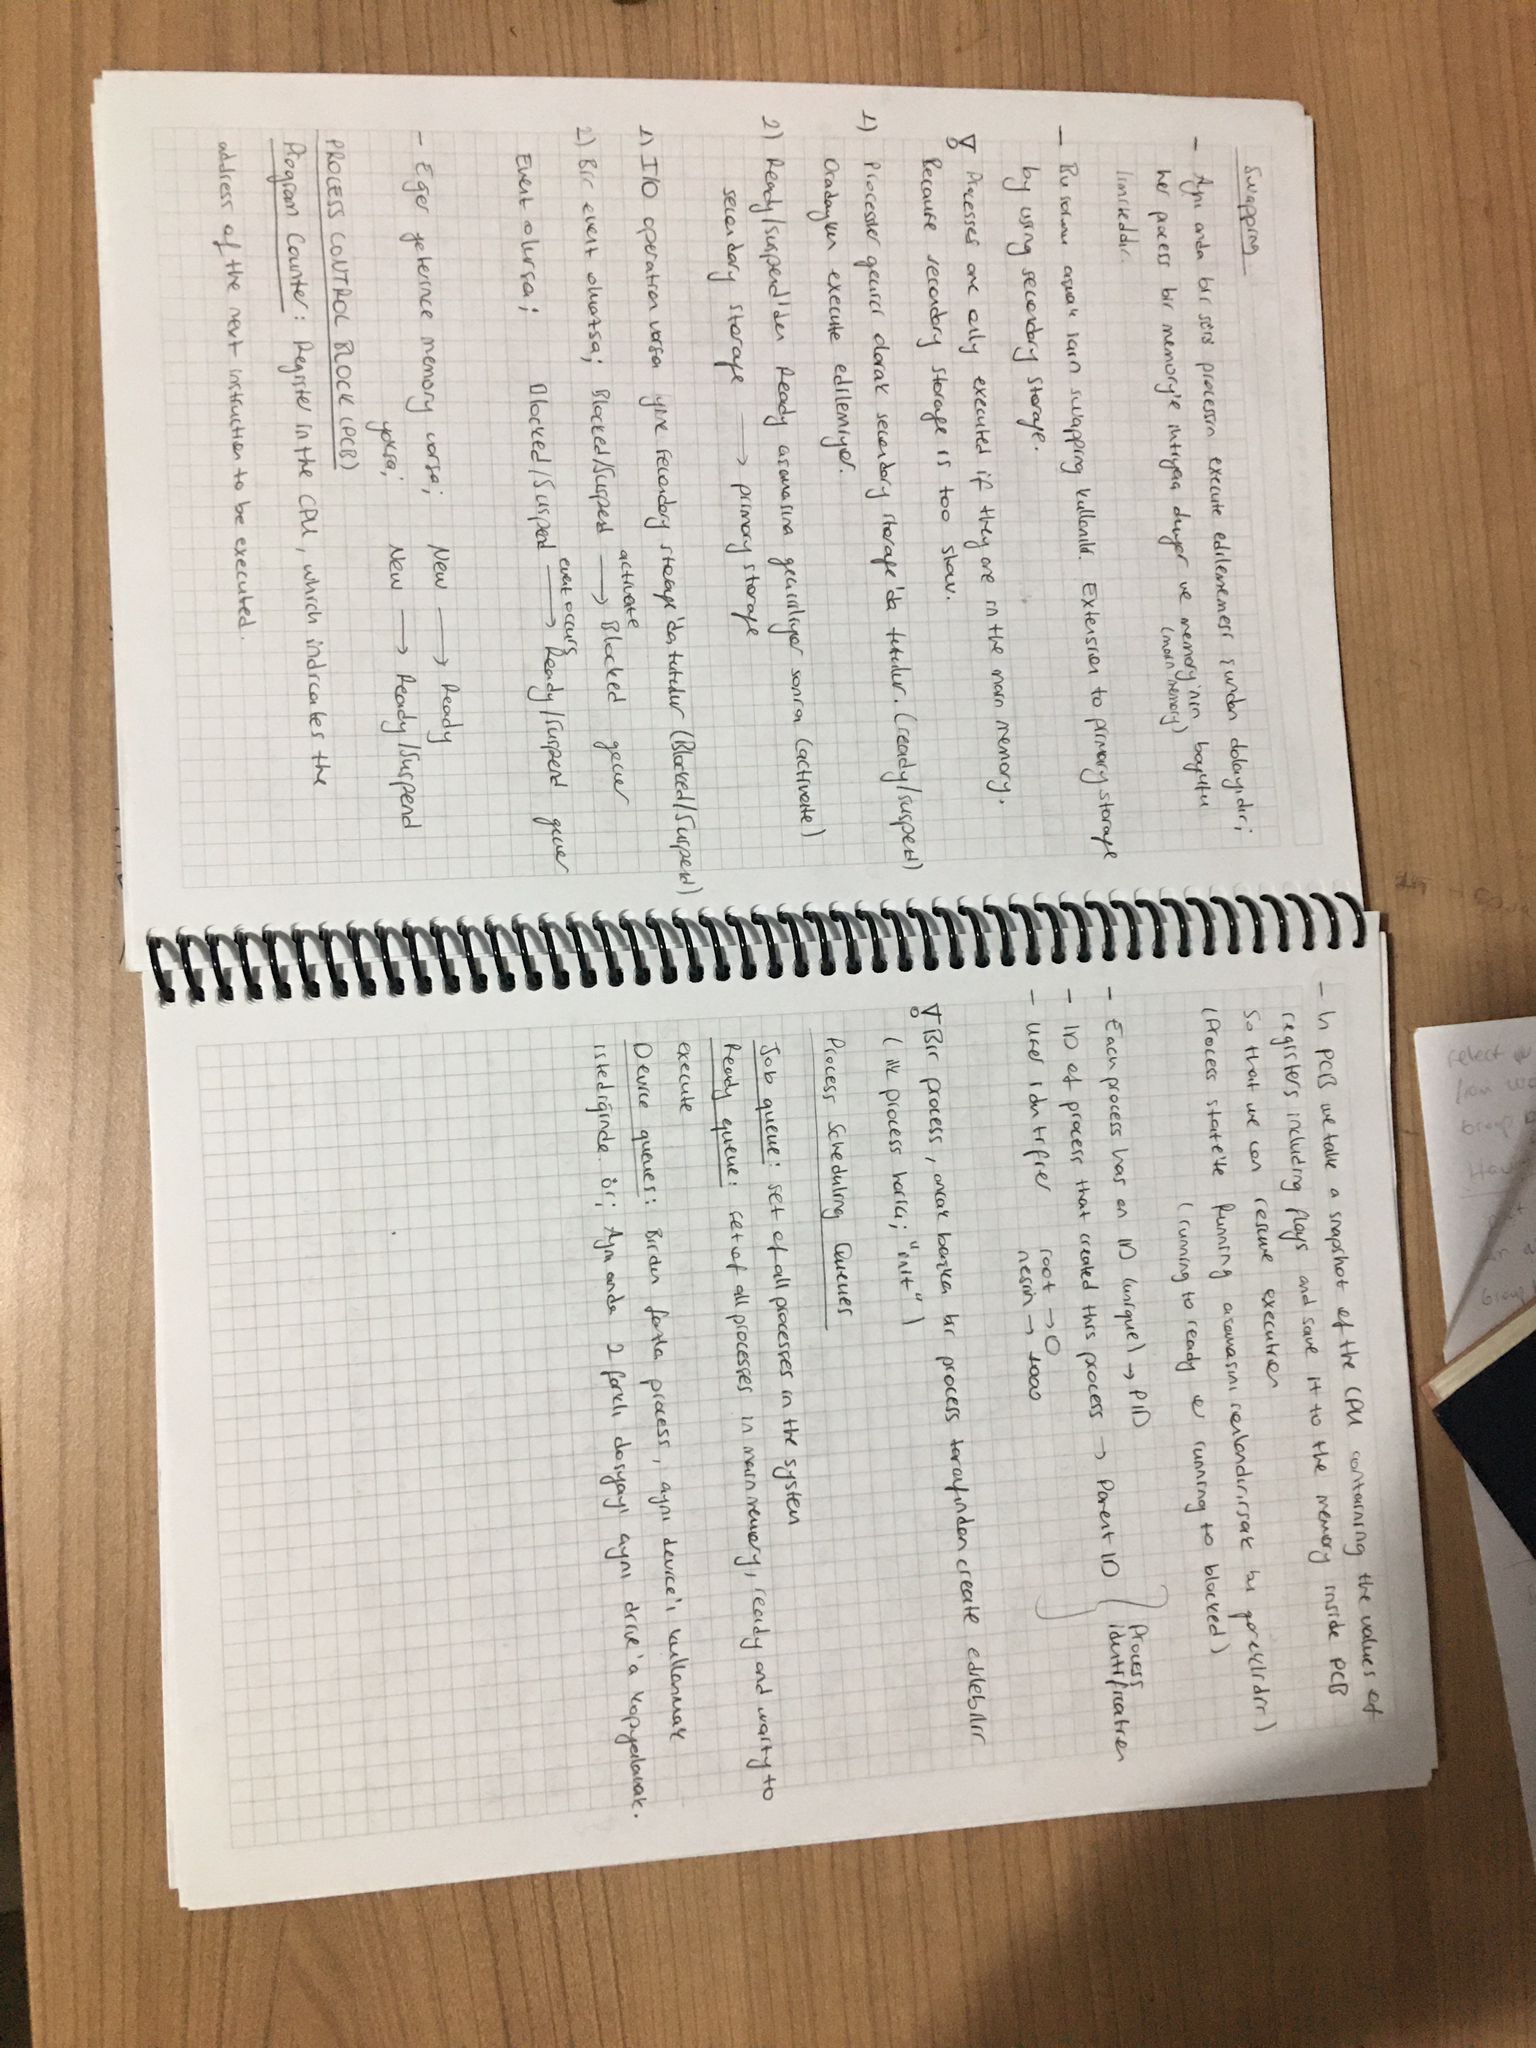 Swapping
- Aynı anda bir sürü processin execute edilememesi şundan dolayıdır;
her process bir memory'e ihtiyaç duyar ve memory'nin boyutu
(main memory)
limitlidir.
- Bu sorunu aşmak için swapping kullanılır. Extension to primary storage
by using secondary storage.
! Processes are only executed if they are in the main memory.
Because secondary storage is too slow.
1) Processler geçici olarak secondary storage'da tutulur. (ready/suspend)
Oradayken execute edilemiyor.
2) Ready/suspend'den Ready aşamasına geçiriliyor sonra (activate)
secondary storage → primary storage
1) I/O operation varsa yine secondary storage'da tutulur (Blocked/Suspend)
2) Bir event olmazsa; Blocked/Suspend → activate Blocked geçer
Event olursa; Blocked/Suspend → event occurs Ready/Suspend geçer
- Eğer yeterince memory varsa; New → Ready
yoksa; New → Ready/Suspend
PROCESS CONTROL BLOCK (PCB)
Program Counter: Register in the CPU, which indicates the
address of the next instruction to be executed.
- In PCB we take a snapshot of the CPU containing the values of
registers including flags and save it to the memory inside PCB
So that we can resume execution
(Process state'te Running aşamasını sonlandırırsak bu gereklidir)
(running to ready or running to blocked)
- Each process has an ID (unique) → PID
- ID of process that created this process → Parent ID
- User identifier root → 0
nesrin → 1000
Process identification
! Bir process, ancak başka bir process tarafından create edilebilir
(ilk process hariç; "init")
Process Scheduling Queues
Job queue: set of all processes in the system
Ready queue: set of all processes in main memory, ready and waiting to
execute
Device queues: Birden fazla process, aynı device'ı kullanmak
istediğinde. ör; Aynı anda 2 farklı dosyayı aynı drive'a kopyalamak.
select
from
Group